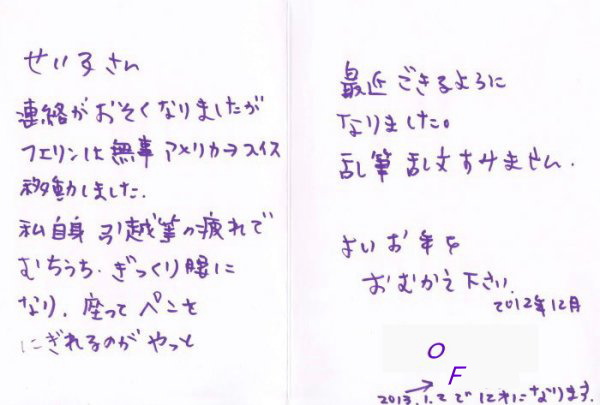 せいすさん
連絡がおそくなりましたが
フェリンは無事アメリカ→スイス
移動しました.
私自身 引越等の疲れで
むちうち.ぎっくり腰に
なり.座ってペンを
にぎれるのがやっと
最近できるように
なりました。
乱筆乱文すみません.
よいお年を
おむかえ下さい.
2012年12月
O
F
2013.1.2で になります.